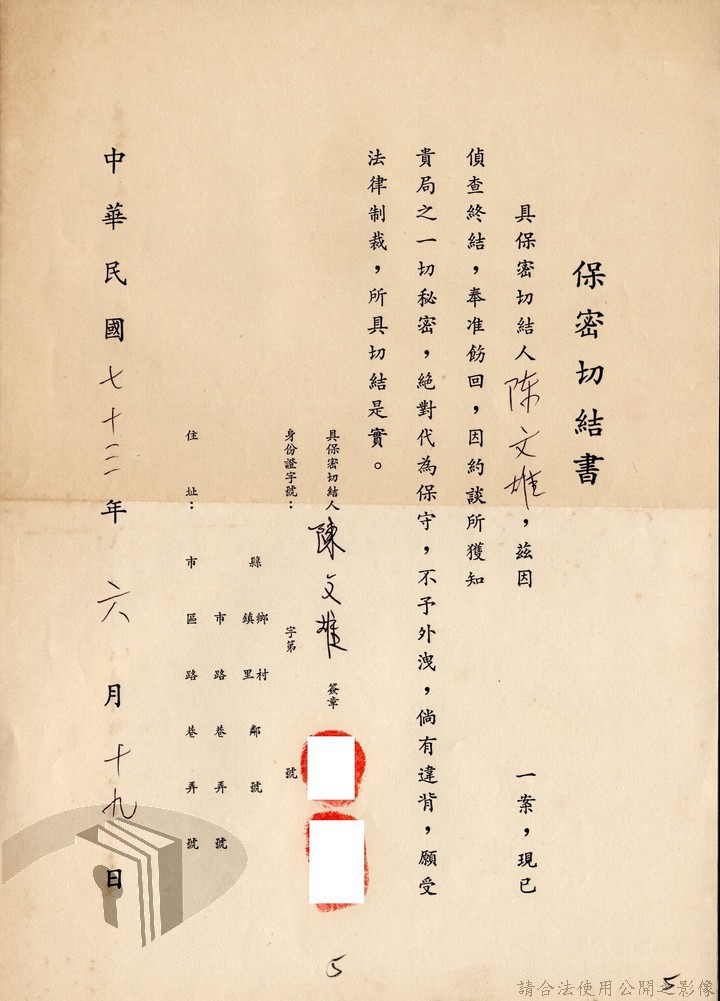 保密切結書
具保密切結人陈文雄,茲因　　　一案,現已
偵查終結,奉准飭回,因約談所獲知
貴局之一切秘密,絕對代為保守,不予外洩,倘有違背,願受
法律制裁,所具切結是實。
具保密切結人陳文雄簽章
身份證字號:　字第　號
縣　鄉鎮　村里　鄰　號
市路巷弄號
住址:市區路巷弄號
中華民國七十三年六月十九日
5
5
請合法使用公開之影像